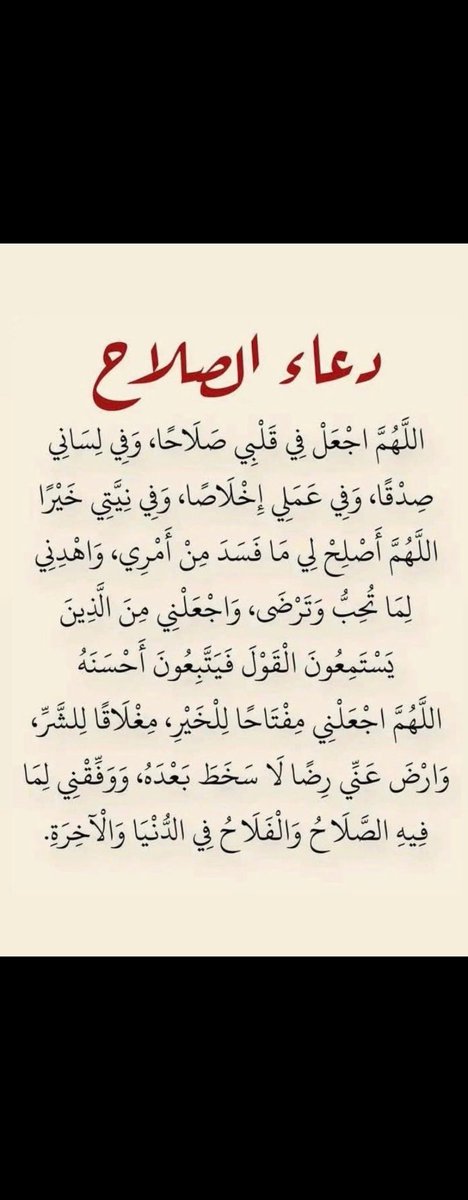 دعاء الصلاح
اللَّهُمَّ اجْعَلْ فِي قَلْبِي صَلَاحًا، وَفِي لِسَانِي
صِدْقًا، وَفِي عَمَلِي إِخْلَاصًا، وَفِي نِيَّتِي خَيْرًا
اللَّهُمَّ أَصْلِحْ لِي مَا فَسَدَ مِنْ أَمْرِي، وَاهْدِنِي
لِمَا تُحِبُّ وَتَرْضَى، وَاجْعَلْنِي مِنَ الَّذِينَ
يَسْتَمِعُونَ الْقَوْلَ فَيَتَّبِعُونَ أَحْسَنَهُ
اللَّهُمَّ اجْعَلْنِي مِفْتَاحًا لِلْخَيْرِ، مِغْلَاقًا لِلشَّرِّ،
وَارْضَ عَنِّي رِضًا لَا سَخَطَ بَعْدَهُ، وَوَفِّقْنِي لِمَا
فِيهِ الصَّلَاحُ وَالْفَلَاحُ فِي الدُّنْيَا وَالْآخِرَةِ.